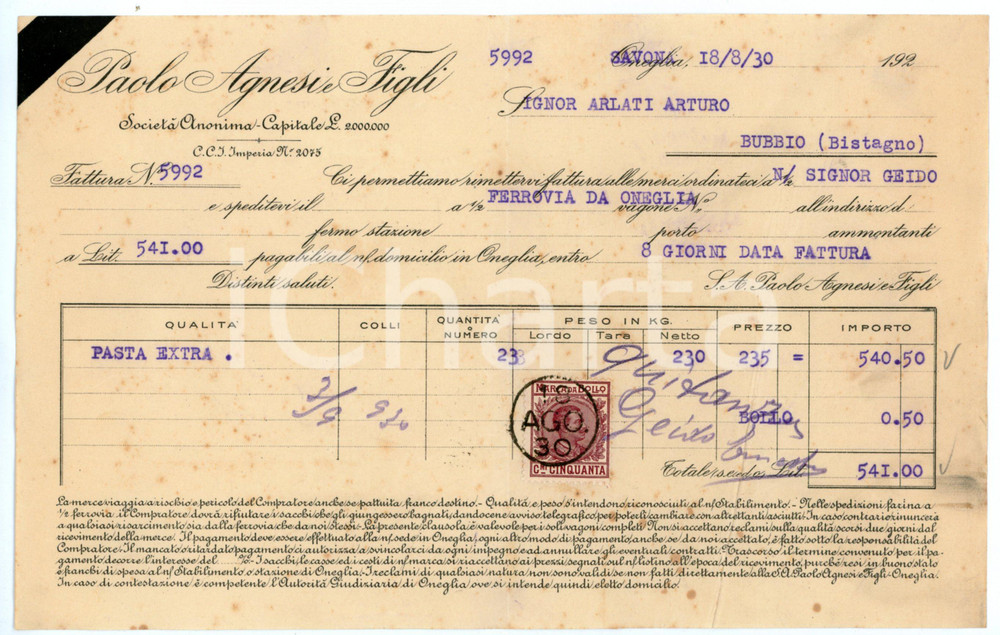 Paolo Agnesi e Figli
Società Anonima - Capitale L. 2.000.000
C.C.I. Imperia N.º 2075
5992 SAVONA Oneglia, 18/8/30 192
SIGNOR ARLATI ARTURO
BUBBIO (Bistagno)
Fattura N. 5992 Ci permettiamo rimettervi fattura alle merci ordinateci a ½ N/ SIGNOR GEIDO
e speditevi il a ½ FERROVIA DA ONEGLIA vagone N. all'indirizzo d
fermo stazione porto ammontanti
a Lit. 541.00 pagabili al n/ domicilio in Oneglia, entro 8 GIORNI DATA FATTURA
Distinti saluti. S.A. Paolo Agnesi e Figli
iCharta
QUALITA' COLLI QUANTITÀ o NUMERO PESO IN KG. Lordo Tara Netto PREZZO IMPORTO
PASTA EXTRA . 23 230 235 = 540.50
Quitanza
Geido
BOLLO 0.50
MARCA DA BOLLO
18
AGO.
30
Cmi CINQUANTA
Totale s.e.do. Lit. 541.00
La merce viaggia a rischio e pericolo del Compratore anche se pattuita franco destino. - Qualità e peso s'intendono riconosciuti al n/ Stabilimento. - Nelle spedizioni farina a
½ ferrovia il Compratore dovrà rifiutare i sacchi che gli giungessero bagnati, dandocene avviso telegrafico per poterli cambiare con altrettanti asciutti. In caso contrario rinuncerà
a qualsiasi risarcimento sia dalla ferrovia che da noi stessi. - La presente clausola è valevole per i soli vagoni completi. Non si accettano reclami sulla qualità scorsi due giorni dal
ricevimento della merce. Il pagamento deve essere effettuato alla n/ sede in Oneglia, ogni altro modo di pagamento anche se da noi accettato, è fatto sotto la responsabilità del
Compratore. Il mancato o ritardato pagamento ci autorizza a svincolarci da ogni impegno e ad annullare gli eventuali contratti. Trascorso il termine convenuto per il pa-
gamento decorre l'interesse del %. I sacchi, le casse ed i cesti di n/ marca si riaccettano ai prezzi segnati sul n/ listino all'epoca del ricevimento, purchè resi in buono stato
e franchi di spesa al n/ Stabilimento o stazione di Oneglia. I reclami di qualsiasi natura non sono validi se non fatti direttamente alla S.A. Paolo Agnesi e Figli - Oneglia.
In caso di contestazione è competente l'Autorità Giudiziaria di Oneglia ove si intende quindi eletto domicilio.